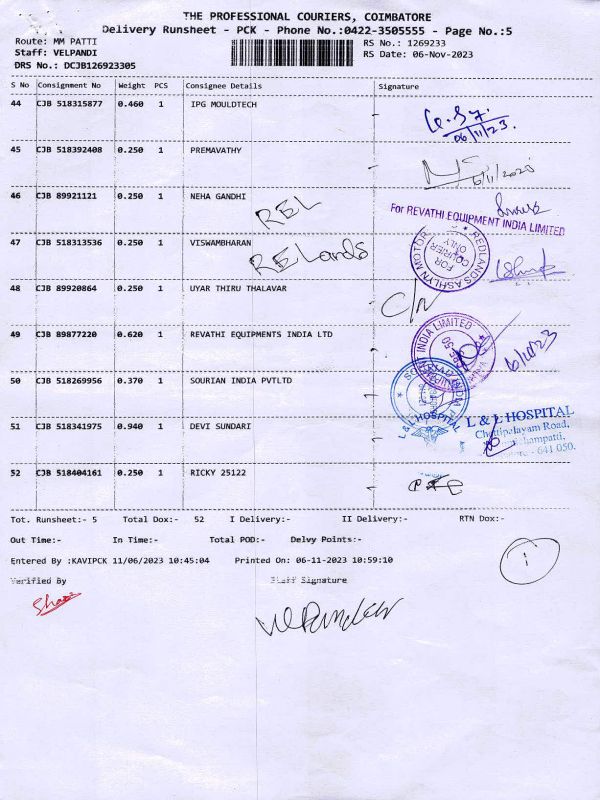 THE PROFESSIONAL COURIERS, COIMBATORE
Delivery Runsheet - PCK - Phone No.:0422-3505555 - Page No.:5
Route: MM PATTI
RS No.: 1269233
Staff: VELPANDI
RS Date: 06-Nov-2023
DRS No.: DCJB126923305
S No Consignment No Weight PCS Consignee Details Signature
44 CJB 518315877 0.460 1 IPG MOULDTECH
06/11/23.
45 CJB 518392408 0.250 1 PREMAVATHY
6/11/2020
46 CJB 89921121 0.250 1 NEHA GANDHI
REL
For REVATHI EQUIPMENT INDIA LIMITED
47 CJB 518313536 0.250 1 VISWAMBHARAN
RELands
REDLANDS ASHLYN MOTOR
FOR COURIER ONLY
48 CJB 89920864 0.250 1 UYAR THIRU THALAVAR
C/N
49 CJB 89877220 0.620 1 REVATHI EQUIPMENTS INDIA LTD
INDIA LIMITED
6/11/23
50 CJB 518269956 0.370 1 SOURIAN INDIA PVTLTD
51 CJB 518341975 0.940 1 DEVI SUNDARI
L & L HOSPITAL
L & L HOSPITAL
Chettipalayam Road,
- 641 050.
52 CJB 518404161 0.250 1 RICKY 25122
Tot. Runsheet:- 5 Total Dox:- 52 I Delivery:- II Delivery:- RTN Dox:-
Out Time:- In Time:- Total POD:- Delvy Points:-
Entered By :KAVIPCK 11/06/2023 10:45:04 Printed On: 06-11-2023 10:59:10
Verified By Staff Signature